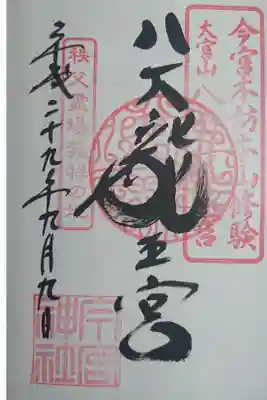 今宮本坊 山修験
大宮山 八 宮
八大龍王宮
秩父霊場発祥の地
平成二十九年九月九日
今宮神社